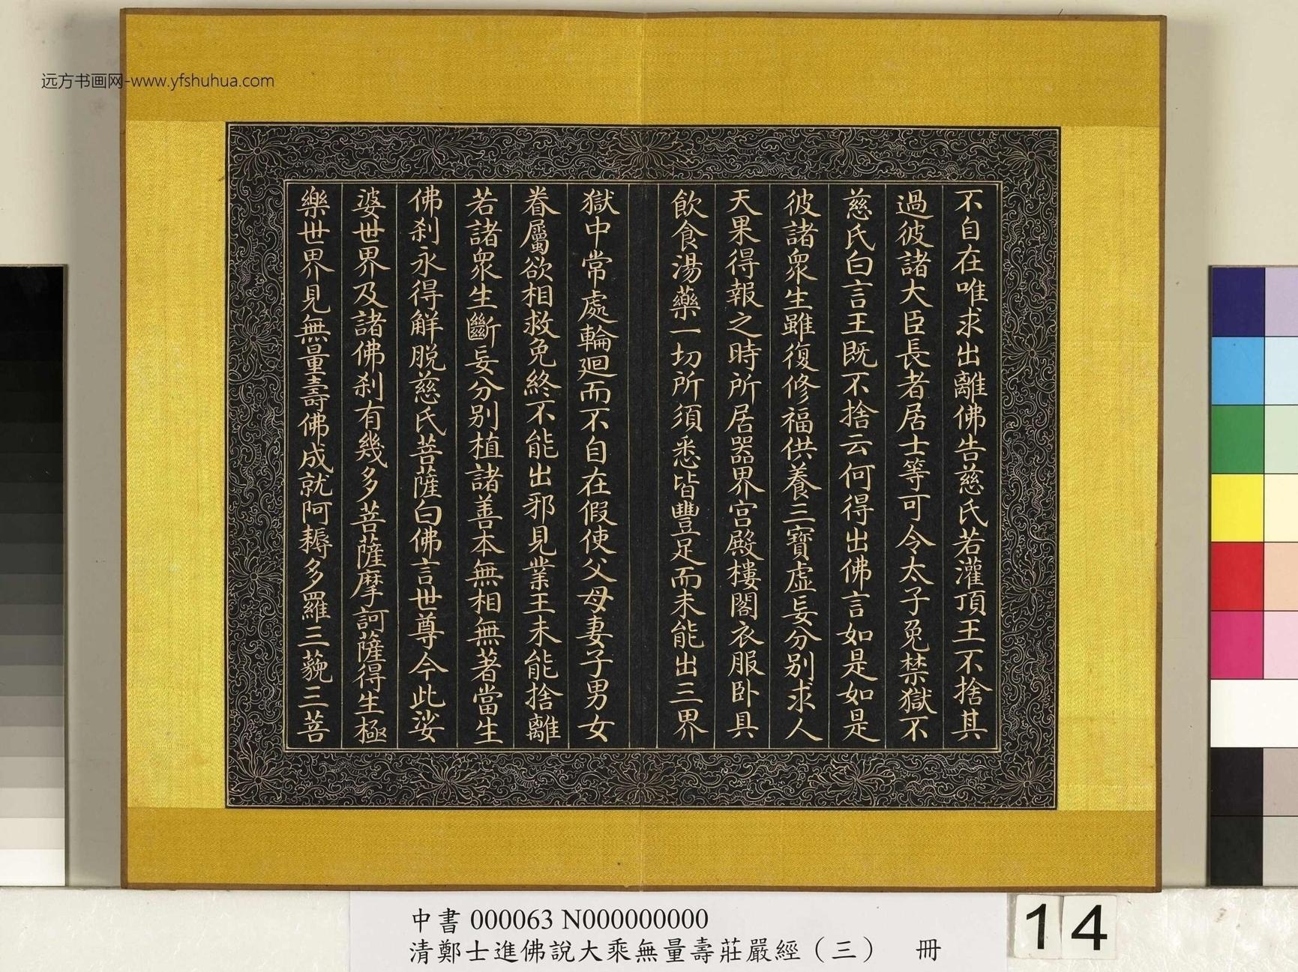 远方书画网-www.yfshuhua.com
不自在唯求出離佛告慈氏若灌頂王不捨其
過彼諸大臣長者居士等可令太子免禁獄不
慈氏白言王既不捨云何得出佛言如是如是
彼諸衆生雖復修福供養三寶虛妄分别求人
天果得報之時所居器界宮殿樓閣衣服卧具
飲食湯藥一切所須悉皆豐足而未能出三界
獄中常處輪廻而不自在假使父母妻子男女
眷屬欲相救免終不能出邪見業王未能捨離
若諸衆生斷妄分别植諸善本無相無著當生
佛刹永得解脱慈氏菩薩白佛言世尊今此娑
婆世界及諸佛刹有幾多菩薩摩訶薩得生極
樂世界見無量壽佛成就阿耨多羅三藐三菩
中書 000063 N000000000
清鄭士進佛說大乘無量壽莊嚴經（三） 冊
14